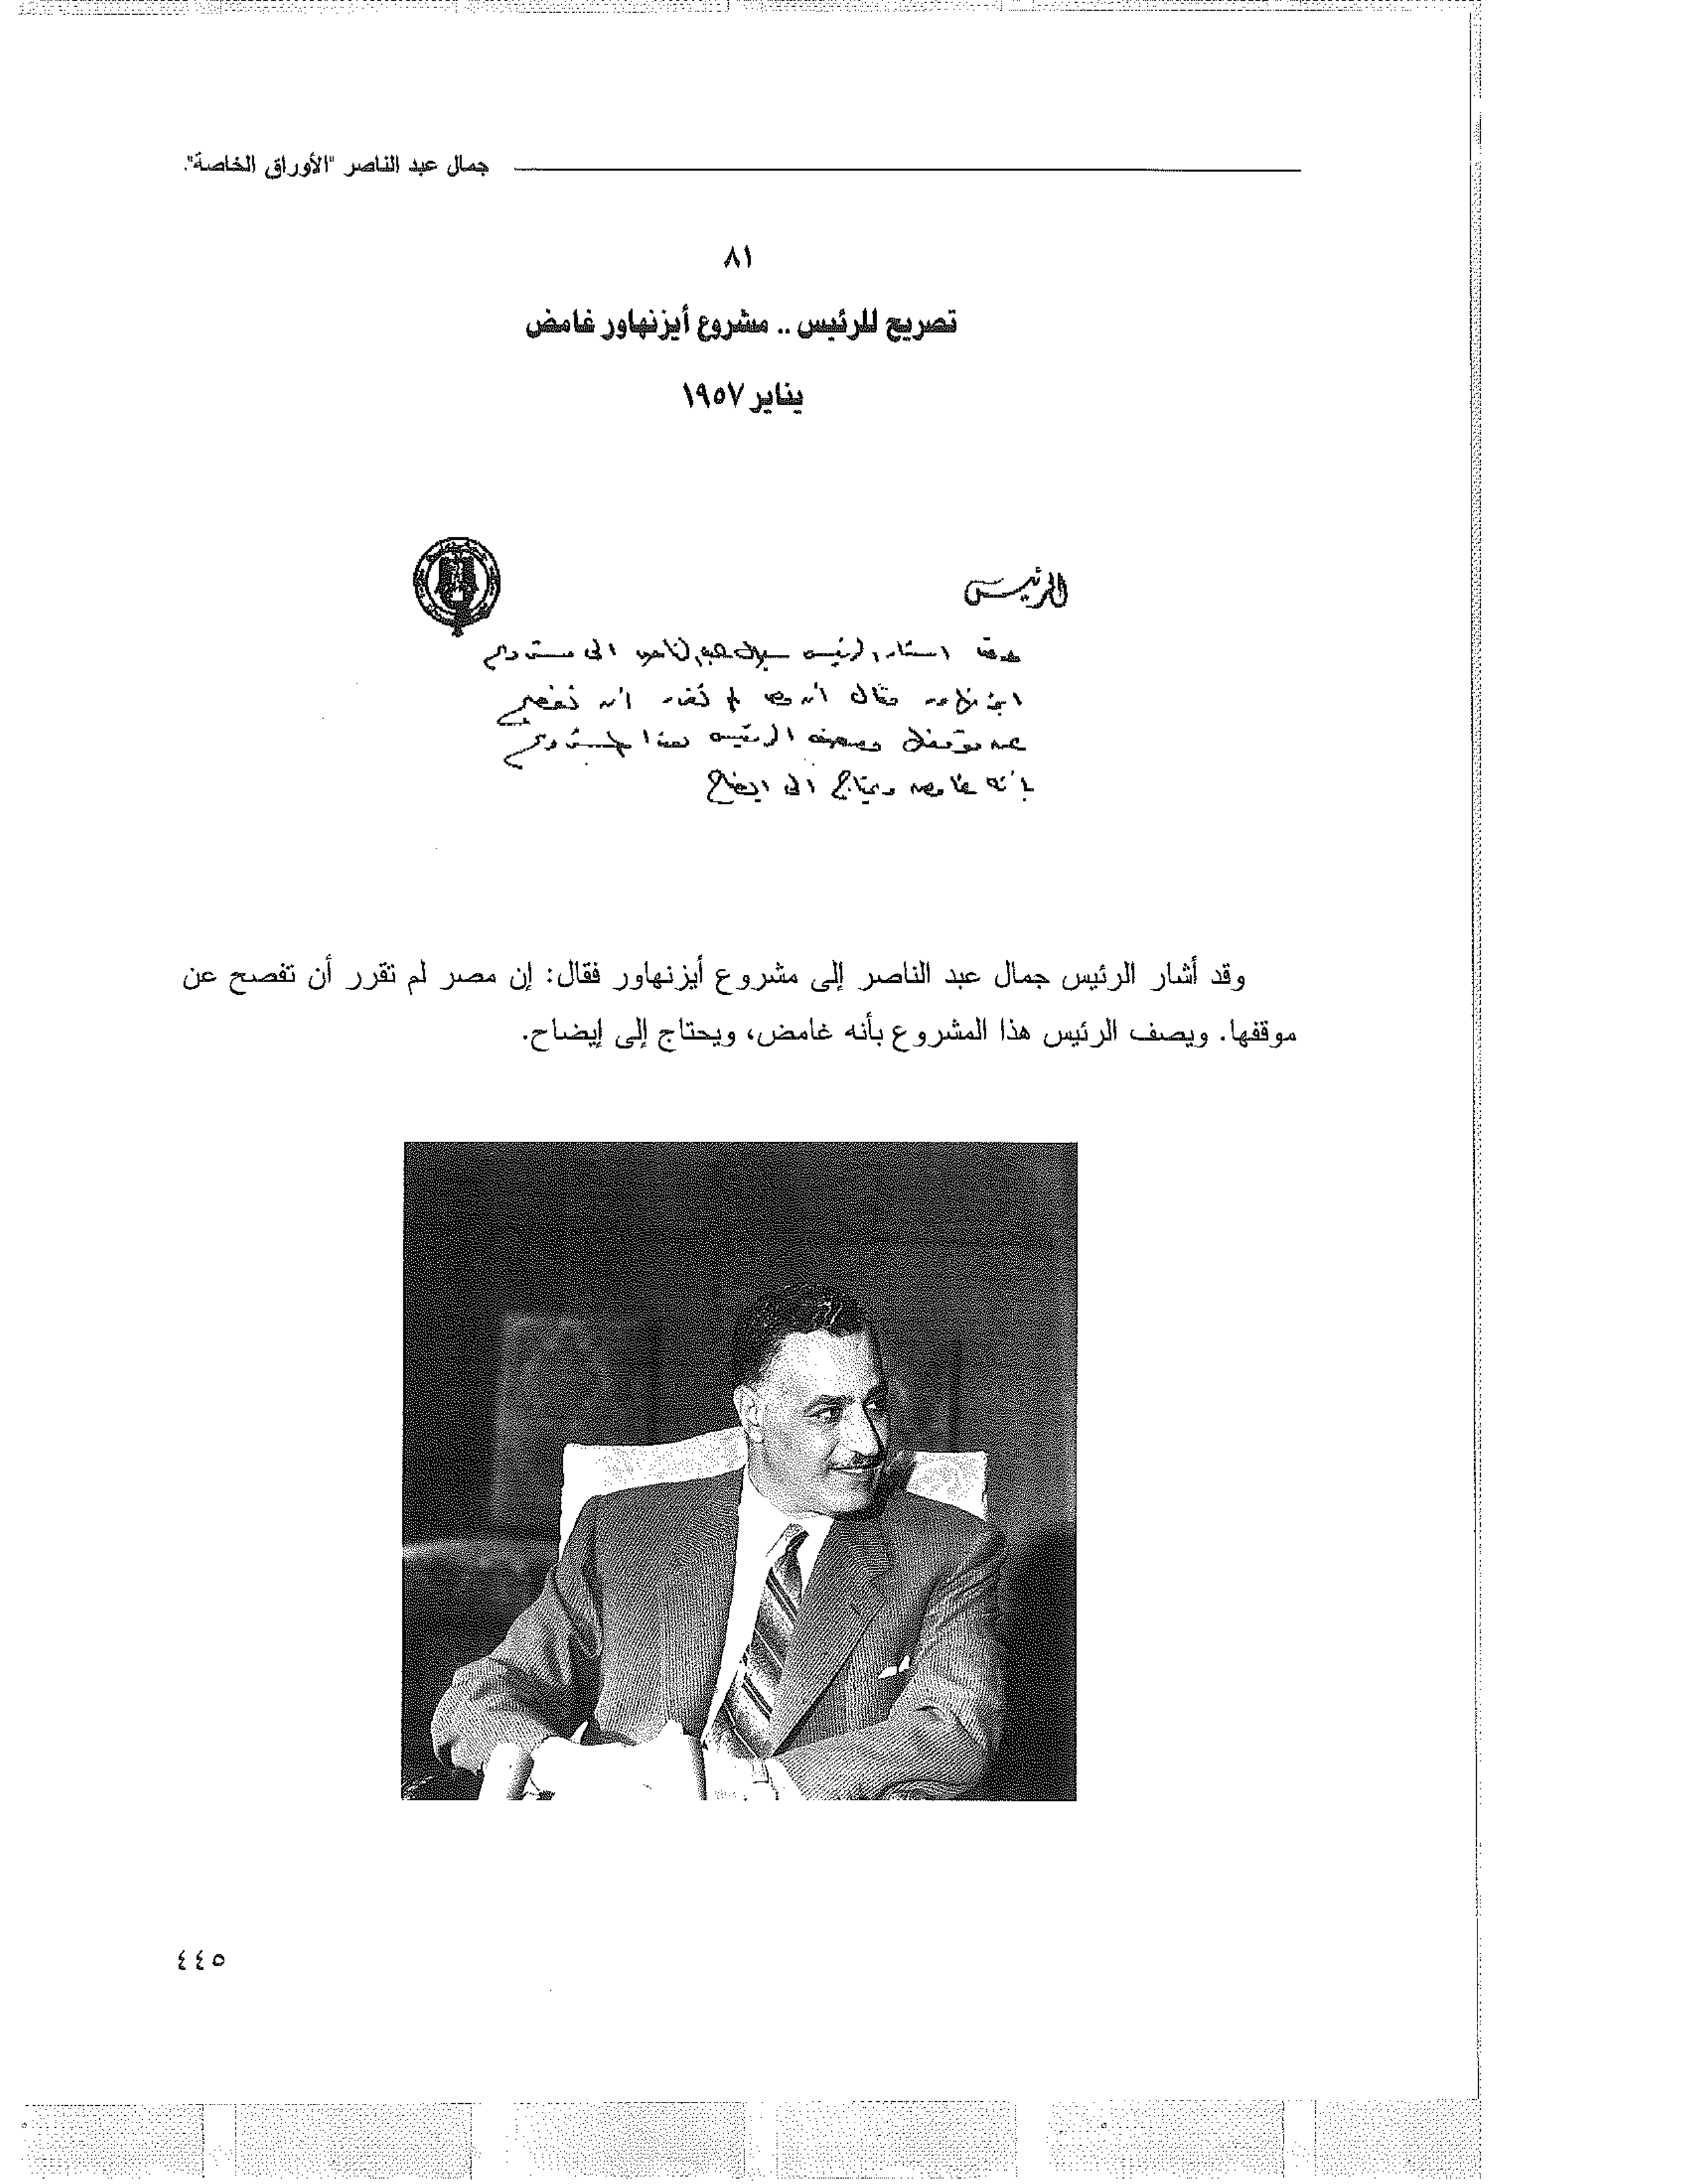 جمال عبد الناصر "الأوراق الخاصة".
٨١
تصريح للرئيس .. مشروع أيزنهاور غامض
يناير ١٩٥٧
الرئيس
وقد اشار الرئيس جمال عبد الناصر الى مشروع
ايزنهاور فقال ان مصر لم تقرر ان تفصح
عن موقفها ويصف الرئيس هذا المشروع
بأنه غامض ويحتاج الى ايضاح
وقد أشار الرئيس جمال عبد الناصر إلى مشروع أيزنهاور فقال: إن مصر لم تقرر أن تفصح عن
موقفها. ويصف الرئيس هذا المشروع بأنه غامض، ويحتاج إلى إيضاح.
٤٤٥